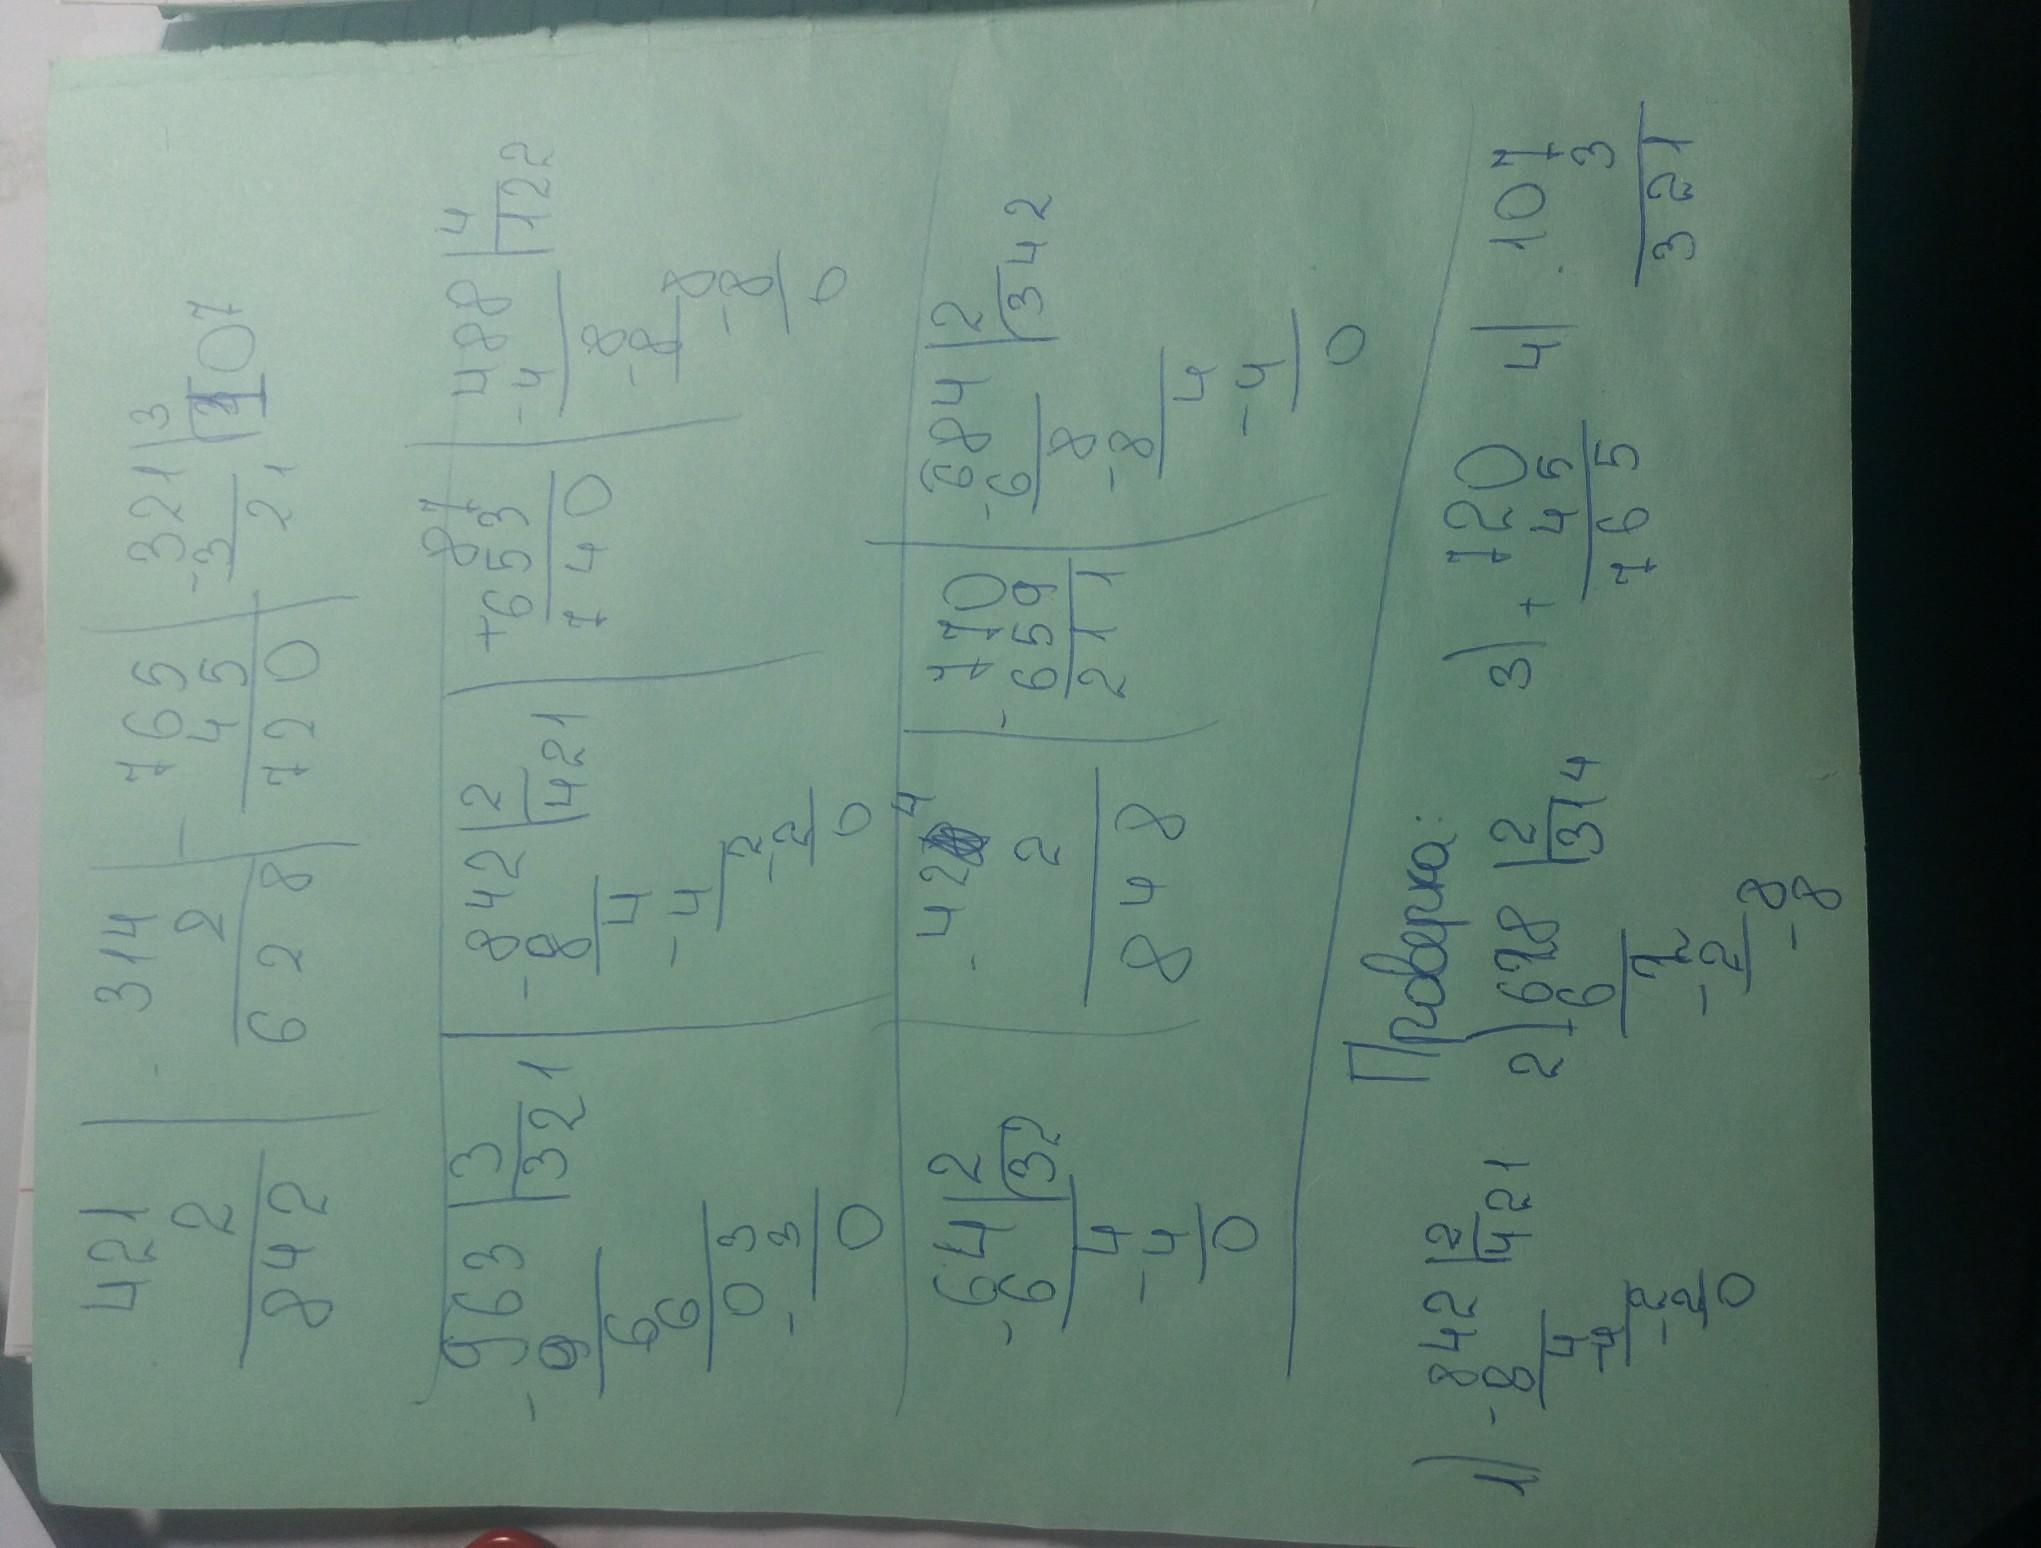 421 | · 314 | - 765 | - 321 | 3
2 2 45 3 107
842 628 720 21
- 963 | 3 - 842 | 2 + 87 - 488 | 4
9 321 8 421 653 4 122
6 4 740 8
6 - 4 - 8
03 2 8
- 3 - 2 - 8
0 0 0
- 64 | 2 · 424 - 770 - 684 | 2
6 32 2 659 6 342
4 848 211 8
- 4 - 8
0 4
- 4
0
Проверка:
1) - 842 | 2 2) 628 | 2 3) + 720 4) · 107
8 421 6 314 45 3
4 2 765 321
- 4 - 2
2 8
- 2 - 8
0